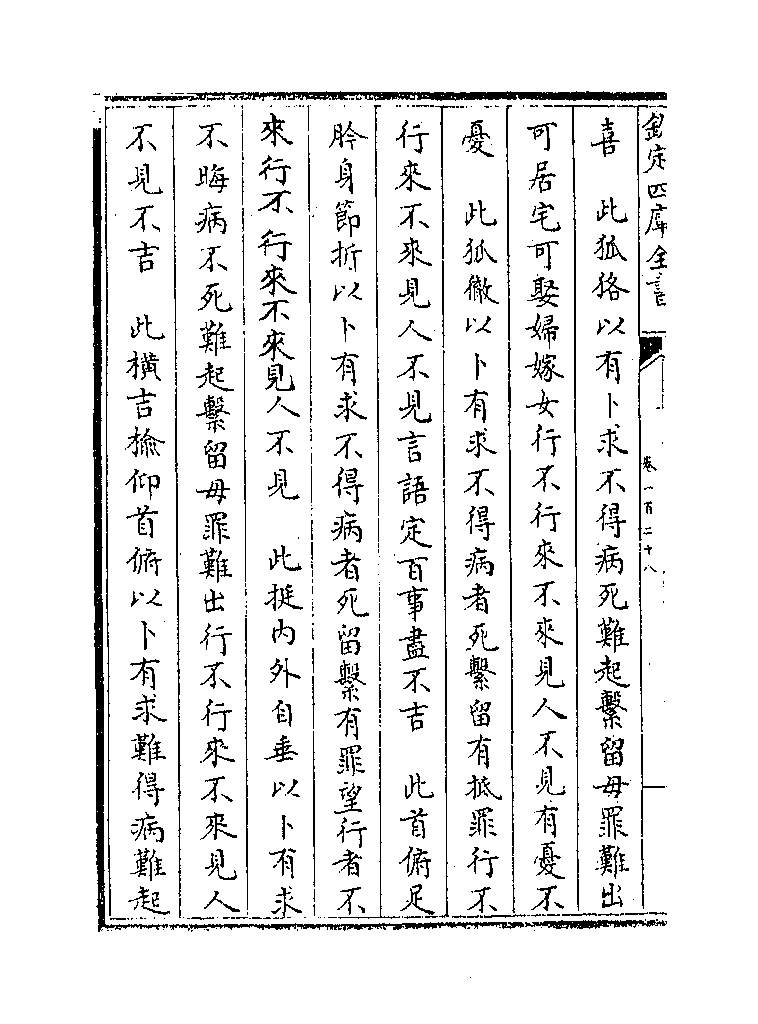 欽定四庫全書
卷一百二十八
喜　此狐狢以有卜求不得病死難起繫留毋罪難出
可居宅可娶婦嫁女行不行來不來見人不見有憂不
憂　此狐徹以卜有求不得病者死繫留有抵罪行不
行來不來見人不見言語定百事盡不吉　此首俯足
肣身節折以卜有求不得病者死留繫有罪望行者不
來行不行來不來見人不見　此挺内外自垂以卜有求
不晦病不死難起繫留毋罪難出行不行來不來見人
不見不吉　此橫吉揄仰首俯以卜有求難得病難起